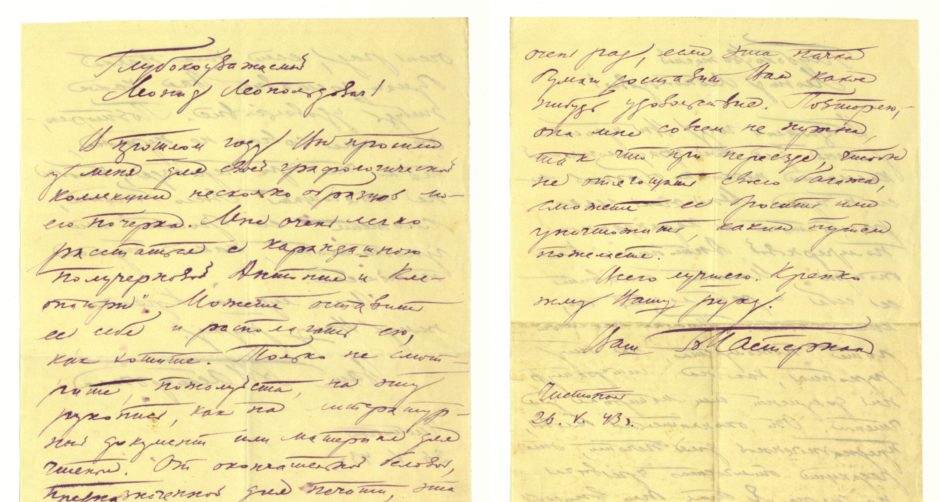 Глубокоуважаемый
Леонид Леопольдович!
В прошлом году Вы просили
у меня для своей графологической
коллекции несколько образцов мо-
его почерка. Мне очень легко
расстаться с карандашною
получерновой "Антония и Кле-
опатры". Можете оставить
ее себе и располагать ею,
как хотите. Только не смот-
рите, пожалуйста, на эту
рукопись, как на литератур-
ный документ или материал для
чтения. От окончательной беловой,
предназначенной для печати, эта
очень рад, если эта пачка
бумаги доставит Вам какое
нибудь удовольствие. Повторяю,-
она мне совсем не нужна,
так что при переезде, чтобы
не отягощать своего багажа,
сможете ее бросить или
уничтожить, каким путем
пожелаете.
Всего лучшего. Крепко
жму Вашу руку.
Ваш Б Пастернак
Чистополь
26. V. 43 г.